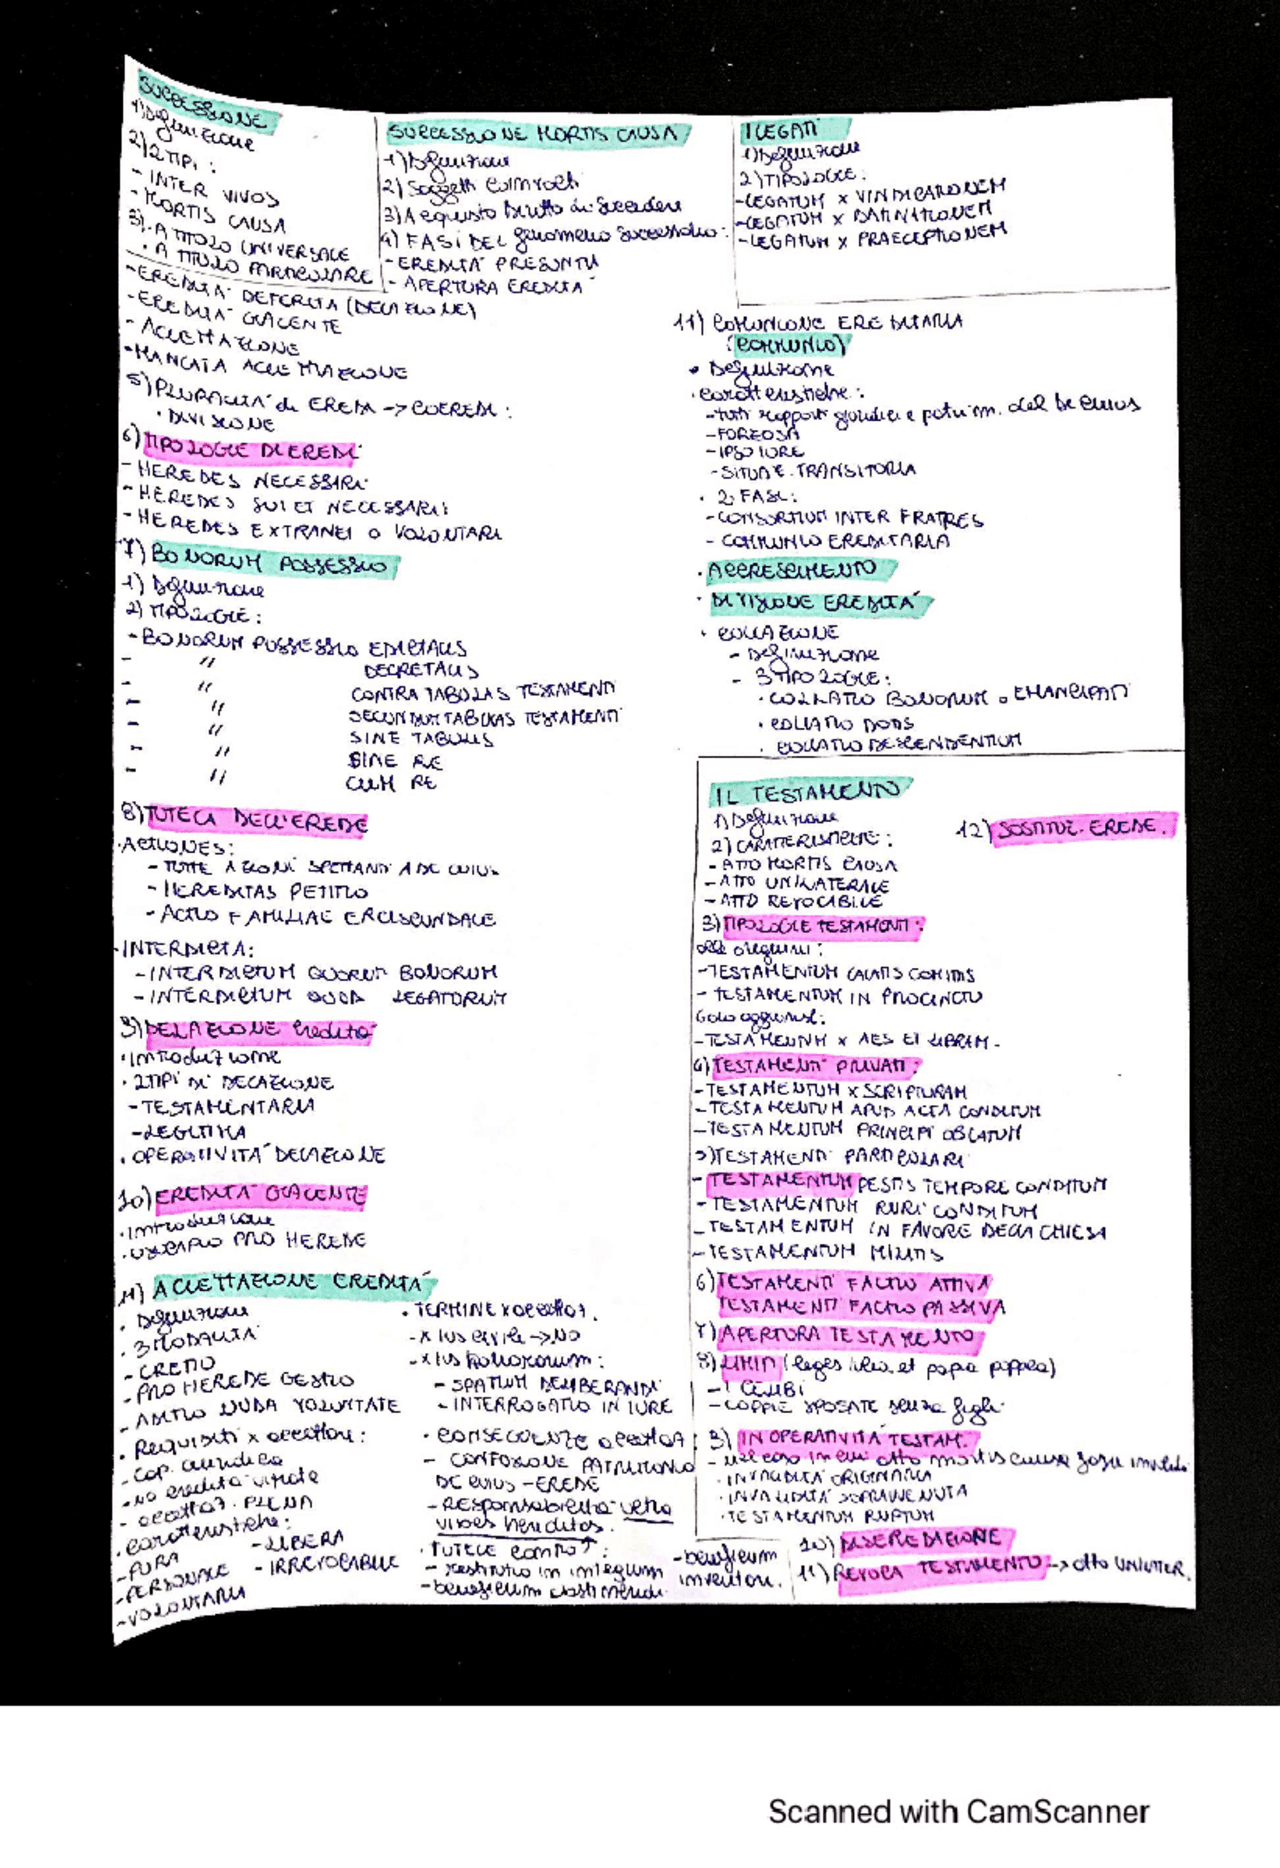 SUCCESSIONE
1) Definizione
2) 2 TIPI:
- INTER VIVOS
- MORTIS CAUSA
3). A TITOLO UNIVERSALE
. A TITOLO PARTICOLARE
SUCCESSIONE MORTIS CAUSA
1) Definizione
2) Soggetti coinvolti
3) Acquisto Diritto di Succedere
4) FASI DEL fenomeno successorio:
- EREDITÀ PRESUNTA
- APERTURA EREDITÀ
- EREDITÀ DEFERITA (DELAZIONE)
- EREDITÀ GIACENTE
- ACCETTAZIONE
- MANCATA ACCETTAZIONE
5) PLURALITÀ di EREDI -> COEREDI:
. DIVISIONE
6) TIPOLOGIE DI EREDI
- HEREDES NECESSARI
- HEREDES SUI ET NECESSARII
- HEREDES EXTRANEI O VOLONTARI
7) BONORUM POSSESSIO
1) Definizione
2) TIPOLOGIE:
- BONORUM POSSESSIO EDICTALIS
- " DECRETALIS
- " CONTRA TABULAS TESTAMENTI
- " SECUNDUM TABULAS TESTAMENTI
- " SINE TABULIS
- " SINE RE
- " CUM RE
8) TUTELA DELL'EREDE
. ACTIONES:
- TUTTE AZIONI SPETTANTI A DE CUIUS
- HEREDITAS PETITIO
- ACTIO FAMILIAE ERCISCUNDAE
. INTERDICTA:
- INTERDICTUM QUORUM BONORUM
- INTERDICTUM QUOD LEGATORUM
9) DELAZIONE Eredità
. Introduzione
. 2 TIPI DI DELAZIONE
- TESTAMENTARIA
- LEGITTIMA
. OPERATIVITÀ DELAZIONE
10) EREDITÀ GIACENTE
. Introduzione
. USUCAPIO PRO HEREDE
11) ACCETTAZIONE EREDITÀ
. Definizione
. 3 MODALITÀ
- CRETIO
- PRO HEREDE GESTIO
- ADITIO NUDA VOLUNTATE
. Requisiti x accettare:
- Cap. Giuridica
- no eredità vipote
- accettaz. PIENA
. caratteristiche:
- PURA
- PERSONALE
- VOLONTARIA
- LIBERA
- IRREVOCABILE
. TERMINE x accettaz.
- x ius civile -> NO
- x ius honorarium:
- SPATIUM DELIBERANDI
- INTERROGATIO IN IURE
. CONSEGUENZE accettaz:
- CONFUSIONE PATRIMONIO
DE CUIUS - EREDE
- Responsabilità ultra
vires hereditas.
. TUTELE
- restitutio in integrum
- beneficium abstinendi
- beneficium
inventari.
I LEGATI
1) Definizione
2) TIPOLOGIE:
- LEGATUM x VINDICATIONEM
- LEGATUM x DAMNATIONEM
- LEGATUM x PRAECEPTIONEM
11) COMUNIONE EREDITARIA
(COMMUNIO)
. Definizione
. caratteristiche:
- tutti rapporti giuridici e patrim. del de cuius
- FORZOSA
- IPSO IURE
- SITUAZ. TRANSITORIA
. 2 FASI:
- CONSORTIUM INTER FRATRES
- COMMUNIO EREDITARIA
. ACCRESCIMENTO
. DIVISIONE EREDITÀ
. COLLAZIONE
- Definizione
- 3 TIPOLOGIE:
. COLLATIO BONORUM o EMANCIPATI
. COLLATIO DOTIS
. COLLATIO DESCENDENTIUM
IL TESTAMENTO
1) Definizione
2) CARATTERISTICHE:
- ATTO MORTIS CAUSA
- ATTO UNILATERALE
- ATTO REVOCABILE
12) SOSTITUZ. EREDE.
3) TIPOLOGIE TESTAMENTI:
alle origini:
- TESTAMENTUM CALATIS COMITIIS
- TESTAMENTUM IN PROCINCTU
Gaio aggiunse:
- TESTAMENTUM x AES ET LIBRAM.
4) TESTAMENTI PRIVATI:
- TESTAMENTUM x SCRIPTURAM
- TESTAMENTUM APUD ACTA CONDITUM
- TESTAMENTUM PRINCIPI OBLATUM
5) TESTAMENTI PARTICOLARI
- TESTAMENTUM PESTIS TEMPORE CONDITUM
- TESTAMENTUM RURI CONDITUM
- TESTAMENTUM IN FAVORE DELLA CHIESA
- TESTAMENTUM MILITIS
6) TESTAMENTI FACTIO ATTIVA
TESTAMENTI FACTIO PASSIVA
7) APERTURA TESTAMENTO
8) LIMITI (leges iulia et papia poppea)
- I CELIBI
- COPPIE SPOSATE senza figli
9) INOPERATIVITÀ TESTAM.
- nel caso in cui atto mortis causa fosse invalido
. INVALIDITÀ ORIGINARIA
. INVALIDITÀ SOPRAVVENUTA
. TESTAMENTUM RUPTUM
10) DISEREDAZIONE
11) REVOCA TESTAMENTO -> atto UNILATER.
Scanned with CamScanner